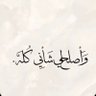 وَأَصلِح لِي شَأنِي كُلَّهُ.